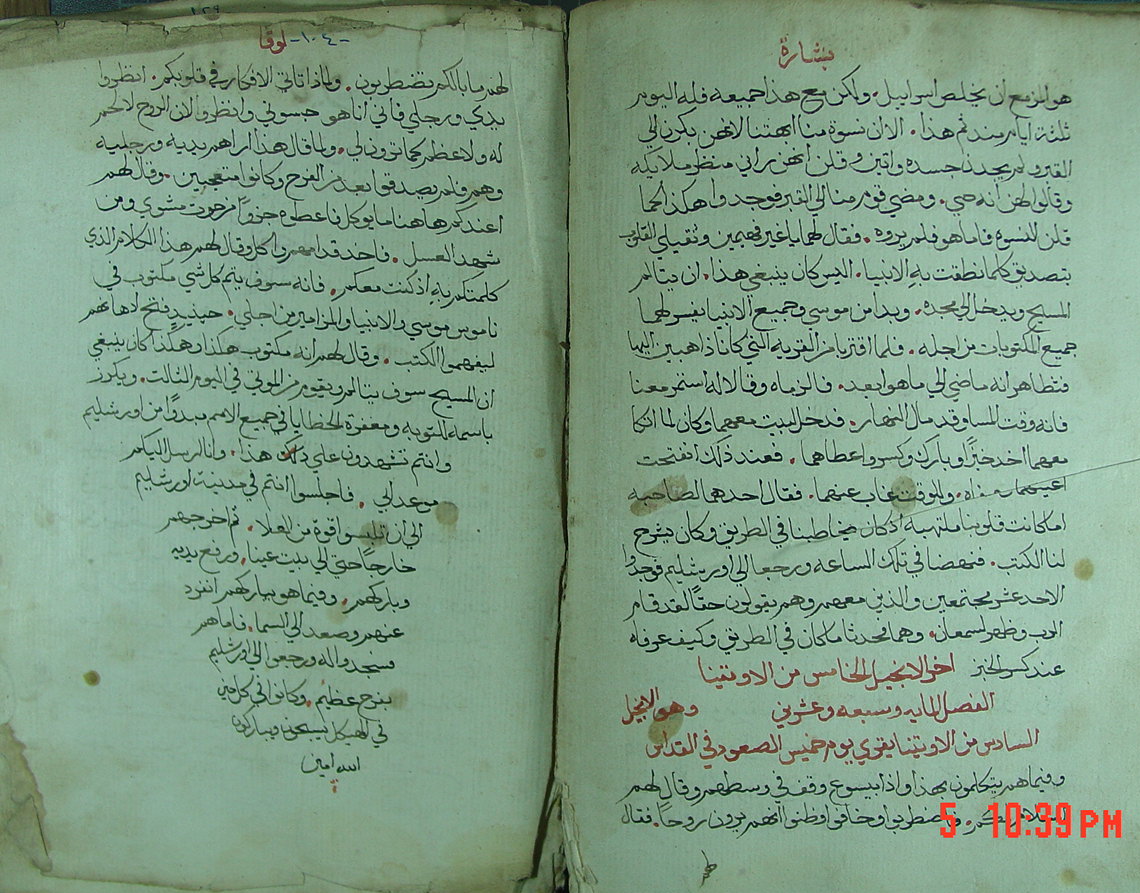 بشارة
هو المزمع أن يخلص اسراييل. ولكن مع هذا جميعه فله اليوم
ثلثة ايام منذ تم هذا. الا ان نسوة منا ابهتنا لانهن بكرن الي
القبر ولم يجدن جسده واتين وقلن انهن راين منظر ملايكه
وقالوا لهن انه حي. ومضي قوم منا الي القبر فوجدوا هكذا كما
قلن النسوة فاما هو فلم يروه. فقال لهما يا غير فهيمين وثقيلي القلوب
بتصديق كلما نطقت به الانبيا. اليس كان ينبغي هذا. ان يتالم
المسيح ويدخل الي مجده. وبدا من موسي وجميع الانبيا يفسر لهما
جميع المكتوبات من اجله. فلما اقتربا من القريه التي كانا ذاهبين اليها
فتظاهر انه ماضي الي ما هو ابعد. فالزماه وقالا له استمر معنا
فانه وقت المسا وقد مال النهار. فدخل البيت معهما وكان لما اتكا
معهما اخد خبزًا وبارك وكسر واعطاهما. فعند ذلك انفتحت
اعينهما معرفاه. وللوقت غاب عنهما. فقال احدهما لصاحبه
اما كانت قلوبنا ملتهبه اذ كان يخاطبنا في الطريق وكان يشرح
لنا الكتب. فنهضا في تلك الساعه ورجعا الي اورشليم فوجدوا
الاحد عشر مجتمعين والذين معهم وهم يقولون حقًا لقد قام
الرب وظهر لسمعان. وهما فحدثا ما كان في الطريق وكيف عرفاه
عند كسر الخبز اخر الانجيل الخامس من الاوتينا
الفصل المايه وسبعه وعشرين وهو الانجيل
السادس من الاوتينا يقري يوم خميس الصعود في القداس
وفيما هم يتكلمون بهذا واذا بيسوع وقف في وسطهم وقال لهم
السلام لكم. فاضطربوا وخافوا وظنوا انهم يرون روحًا. فقال
لهم
5 10:39 PM
١٢٩
-١٠٤- لوقا
لهم ما بالكم تضطربون. ولماذا تاتي الافكار في قلوبكم. انظروا
يدي ورجلي فاني انا هو جسوني وانظروا لان الروح لا لحم
له ولا عظم كما ترون لي. ولما قال هذا اراهم يديه ورجليه
وهم فلم يصدقوا بعد من الفرح وكانوا متعجبين. وقال لهم
اعندكم هاهنا ما يوكل فاعطوه جزوًا من حوت مشوي ومن
شهد العسل. فاخد قدامهم واكل وقال لهم هذا الكلام الذي
كلمتكم به اذ كنت معكم. فانه سوف يتم كل شي مكتوب في
ناموس موسي والانبيا والمزامير من اجلي. حينيذ فتح اذهانهم
ليفهموا الكتب. وقال لهم انه مكتوب هكذا وهكذا كان ينبغي
ان المسيح سوف يتالم ويقوم من الموتي في اليوم الثالت. ويكرز
باسمه للتوبه ومغفرة الخطايا في جميع الامم مبدوًا من اورشليم
وانتم تشهدون علي ذلك هذا. وانا ارسل اليكم
موعد ابي. فاجلسوا انتم في مدينة اورشليم
الي أن تلبسوا قوة من العلا. ثم اخرجهم
خارجًا حتي الي بيت عنيا. ورفع يديه
وباركهم. وفيما هو يباركهم انفرد
عنهم وصعد الي السما. فاما هم
فسجدوا له ورجعوا الي اورشليم
بفرح عظيم. وكانوا في كل حين
في الهيكل يسبحون ويباركون
الله امين